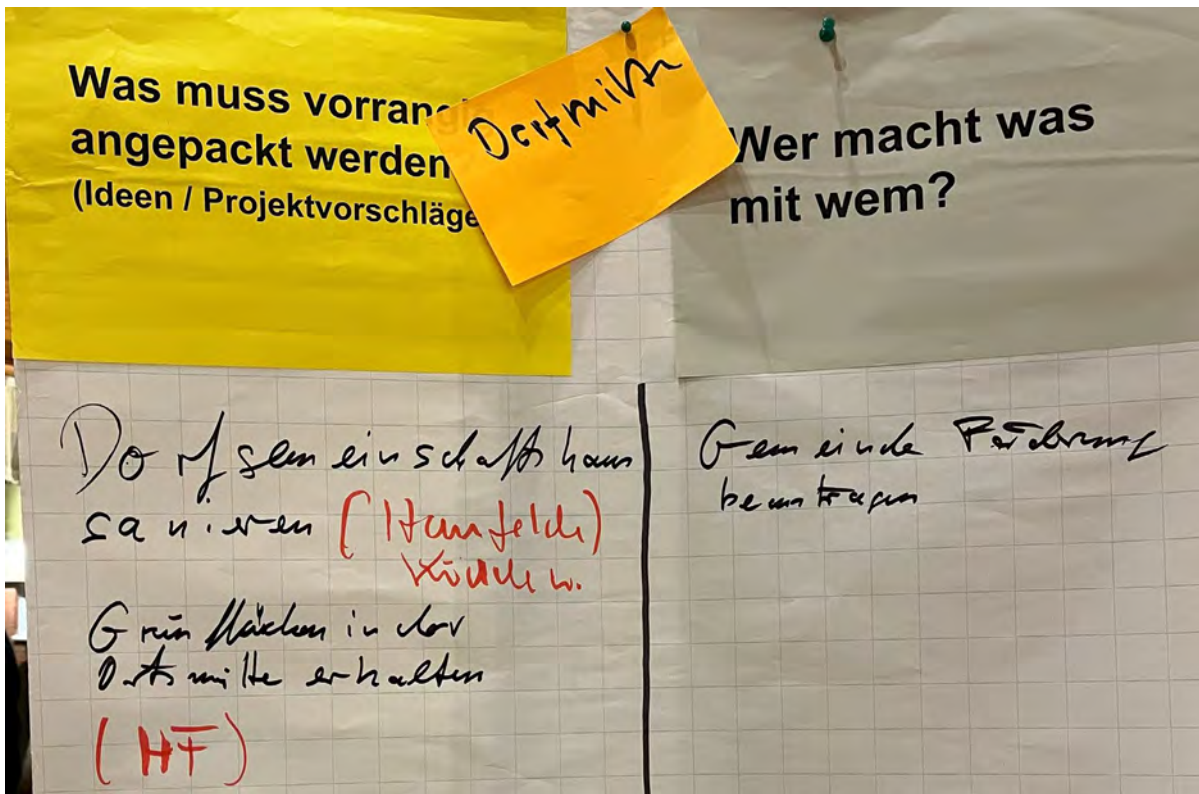 Was muss vorrangig
angepackt werden
(Ideen / Projektvorschläge
Dorfmitte
Wer macht was
mit wem?
Dorfgemeinschaftshaus
sanieren (Hanfelde)
Grünflächen in der
Ortsmitte erhalten
(HF)
Gemeinde Förderung
beantragen